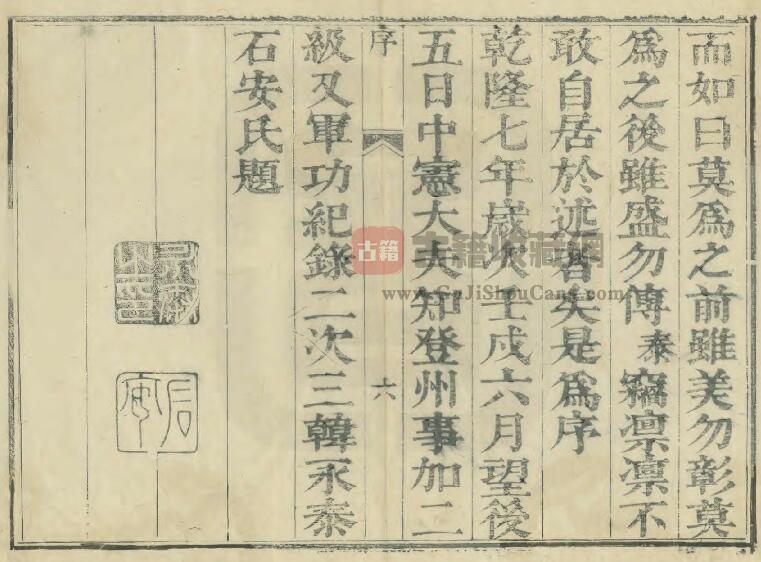 而如曰莫爲之前雖美勿彰莫
爲之後雖盛勿傳泰竊凛凛不
敢自居於述者矣是爲序
乾隆七年歲次壬戌六月望後
五日中憲大夫知登州事加二
序
六
級又軍功紀錄二次三韓永泰
石安氏題
石安
古籍
古籍收藏網
www.GuJiShouCang.com